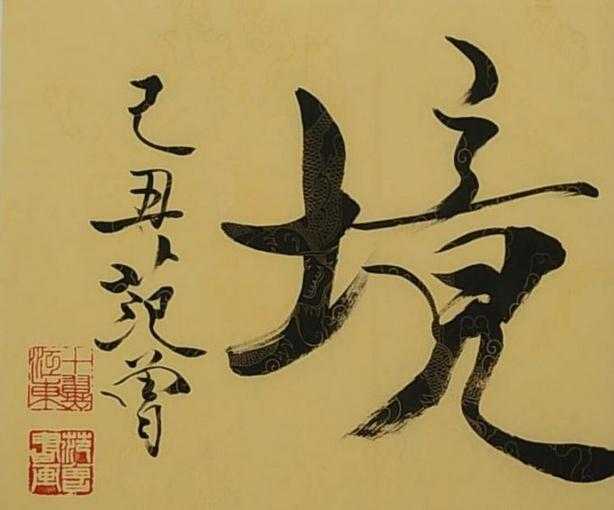 境
己丑范曾